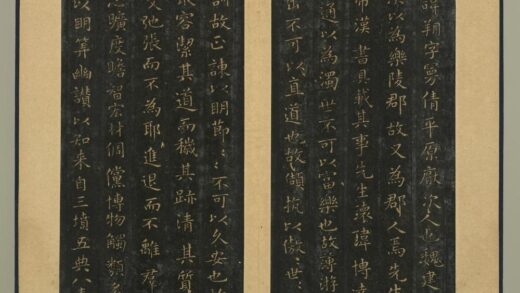 諱朔字曼倩平原厭次人也魏建
次以為樂陵郡故又為郡人焉先生
帝漢書具載其事先生瓌瑋博達
通以為濁世不可以富樂也故薄游
出不可以直道也故頡頏以傲世〻
訓故正諫以明節〻不可以久安也
取容絜其道而穢其跡清其質
文弛張而不為耶進退而不離群
心曠度贍智宏材倜儻博物觸類多
以明筭幽讚以知来自三墳五典八